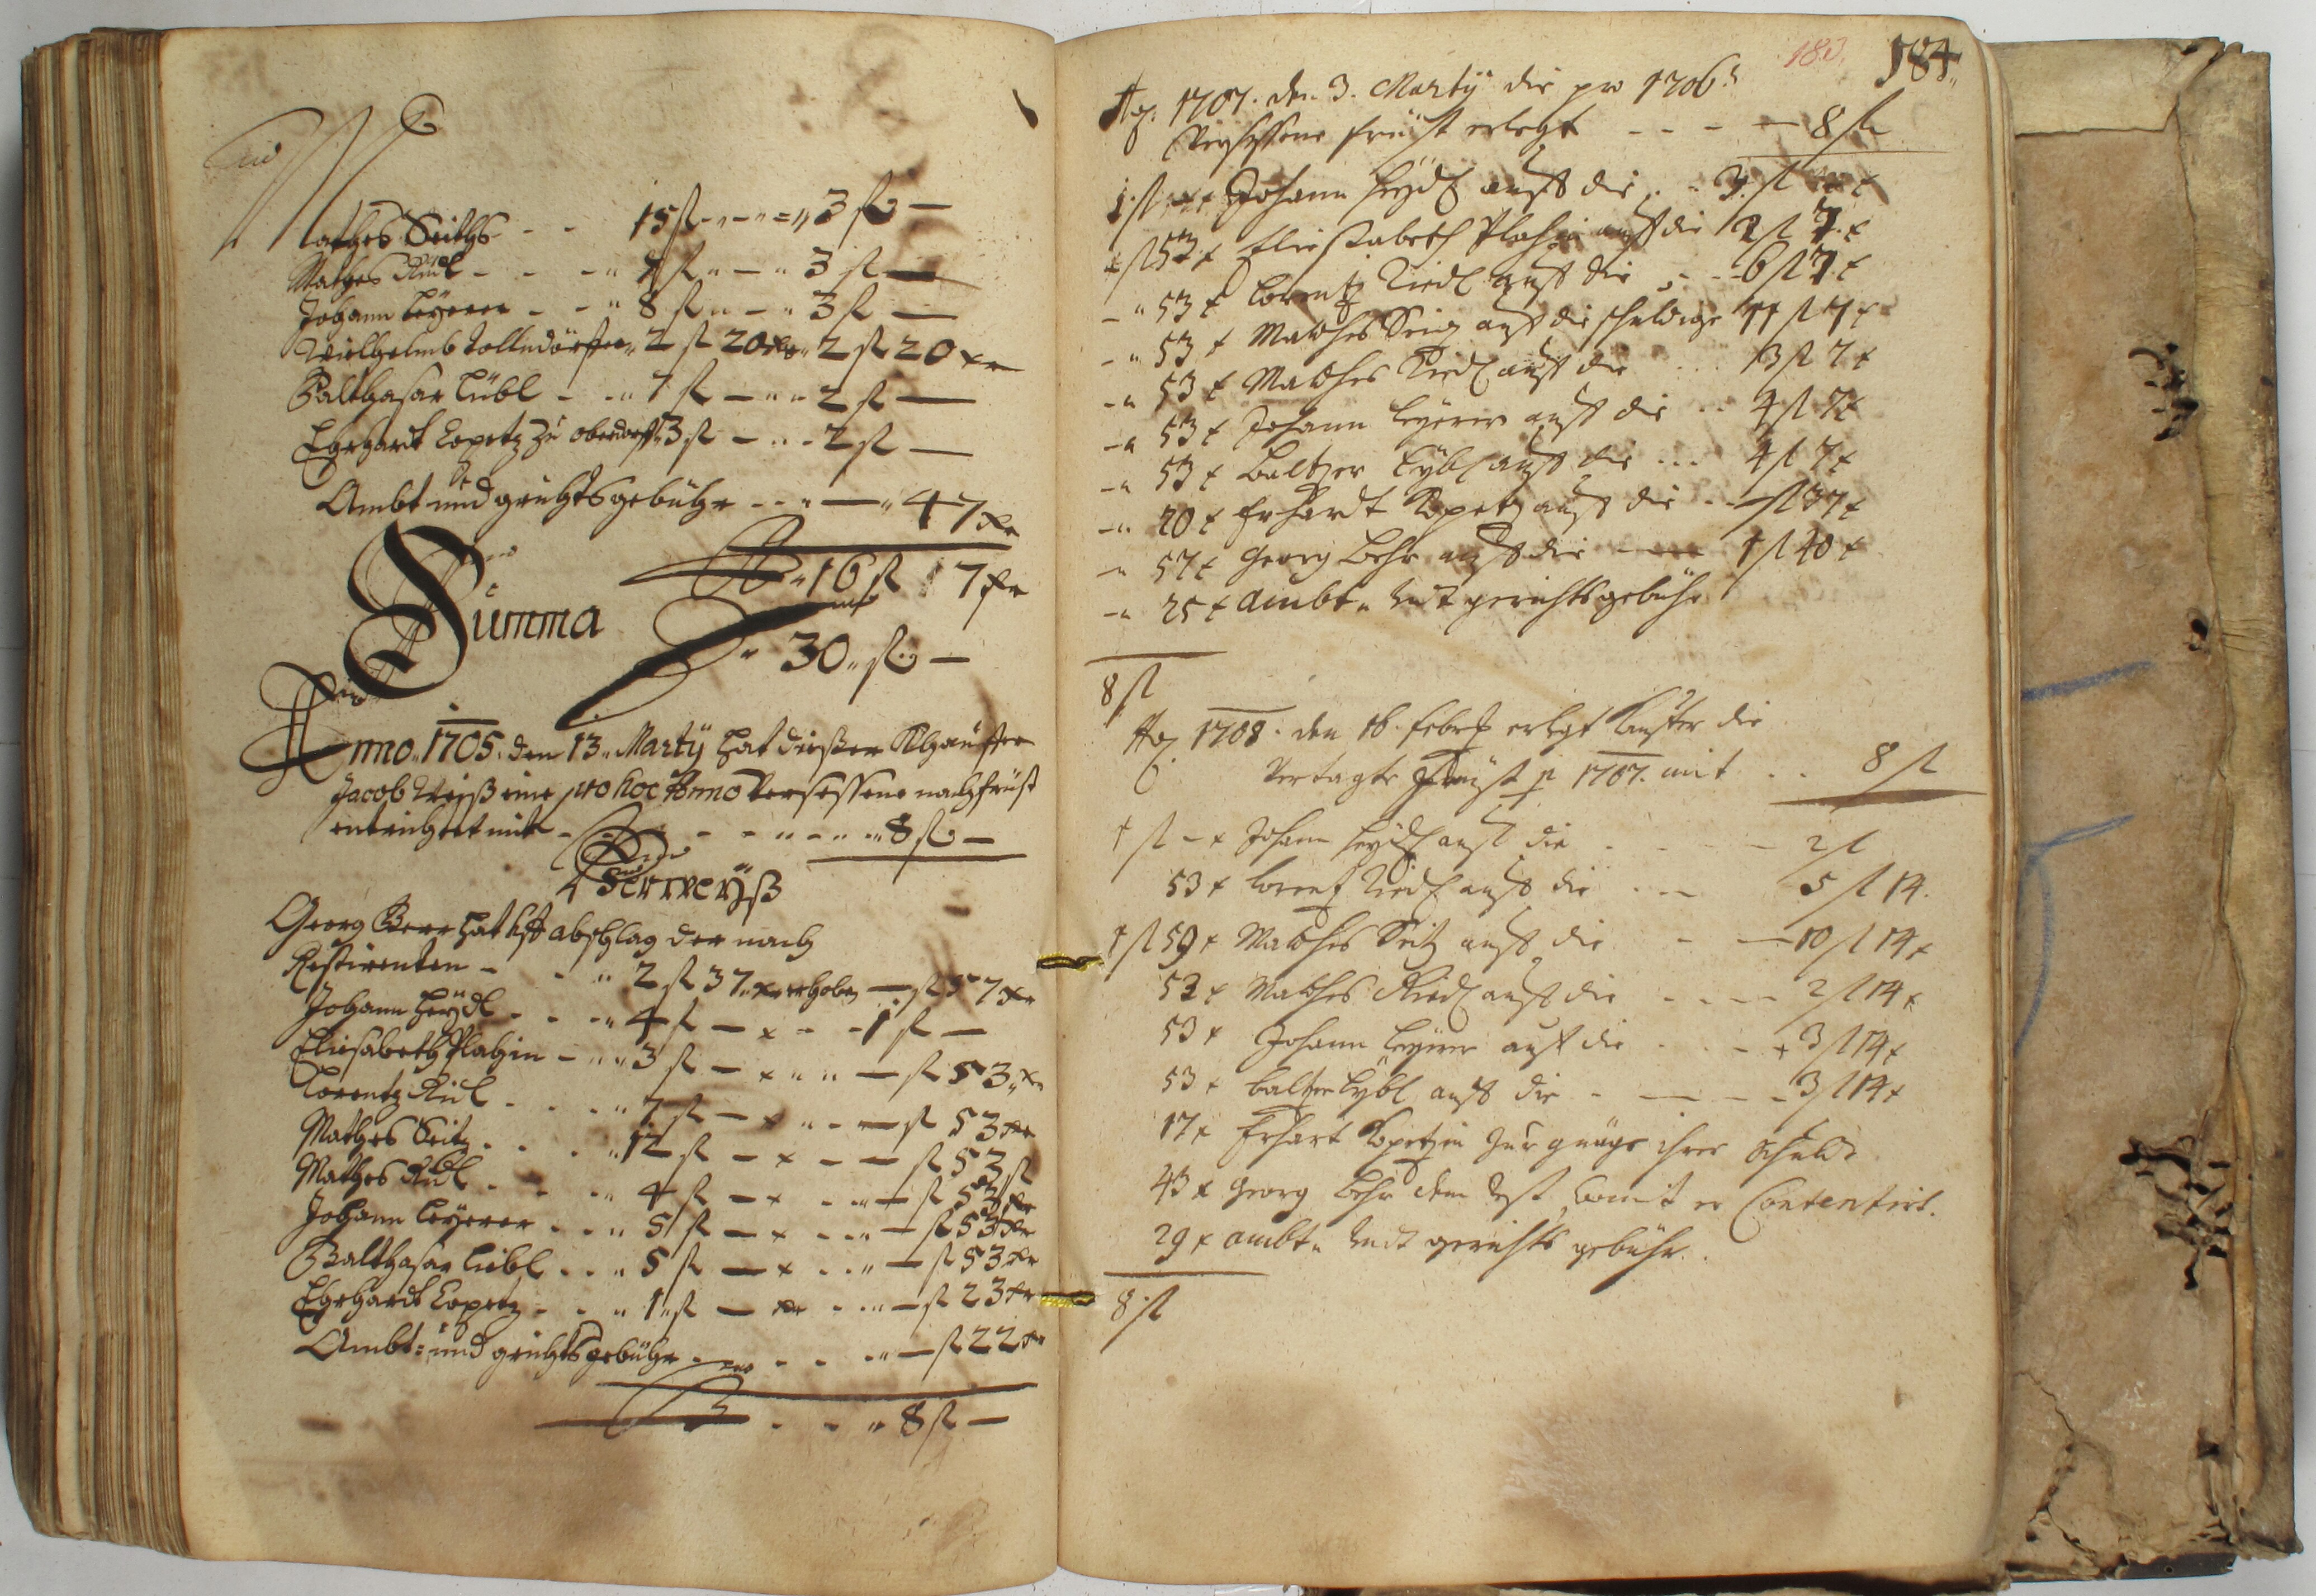 Mathes Seitz - - 15 fl - - - 3 fl -
Mathes Ridl - - - 7 fl - - 3 fl -
Johann Leyerer - - 8 fl - - 3 fl -
Wielhelmb 2 fl 20 xr 2 fl 20 xr
Balthasar Lübl - - 7 fl - - 2 fl -
Ehrhardt Kopetz zu oberdorff 3 fl - - 2 fl -
Ambt und grichtsgebühr - - - 47 xr
16 fl 7 xr
Summa
30 fl -
Anno 1705 den 13 Martÿ hat dießer Khauffer
Jacob Weiß eine pro hoc Anno versessene nachfrist
entrichtet mit - - - - 8 fl -
Verweÿß
Georg Beer hat uff abschlag der nach
Restirenten - - 2 fl 37 xr erhoben - fl 57 xr
Johann Heydl - - - 4 fl - x - - 1 fl -
Eliesabeth Plahin - 3 fl - x - - fl 53 x
Lorentz Ridl - - - 7 fl - x - - fl 53 xr
Mathes Seitz - - - 12 fl - x - - fl 53 fl
Mathes Ridl - - - 4 fl - x - - fl 53 xr
Johann Leyerer - - - 5 fl - x - - fl 53 xr
Balthasar Liebl - - 5 fl - x - - fl 53 xr
Ehrhardt Kopetz - - 1 fl - xr - - fl 23 xr
Ambt: und grichtsgebühr - - - - fl 22 xr
- - 8 fl -
183.
184
Aō. 1707. den 3. Martÿ die pro 1706
versessene frist erlegt - - - - 8 fl
1 fl - x Johann Heydl auff die - - 3 fl - x
- fl 53 x Eliesabeth Plahin auff die 2 fl 7 x
- 53 x Lorentz Riedl auff die - - 6 fl 7 x
- 53 x Mathes Seitz auff die schuldige 11 fl 7 x
- 53 x Mathes Riedl auff die ... 3 fl 7 x
- 53 x Johann Leyerer auff die - - 4 fl 7 x
- 53 x Baltzer Lybl auff die ... 4 fl 7 x
- 20 x Erhardt Kopetz auff die - - fl 37 x
- 57 x Georg Behr auff die - - 1 fl 40 x
- 25 x Ambt- undt gerichtsgebühr
8 fl
Aō. 1708. den 16. febr. erlegt Kauffer die
vertagte frist p 1707. mit .. 8 fl
1 fl - x Johann Heydl auff die - - - 2 fl
53 x Lorentz Riedl auff die - - 5 fl 14.
1 fl 59 x Mathes Seitz auff die - - 10 fl 14 x
53 x Mathes Riedl auff die - - - - 2 fl 14 x
53 x Johann Leyrer auff die - - - 3 fl 14 x
53 x Baltzer Lybl auff die - - - - 3 fl 14 x
17 x Erhart Kopetzin zur gnüge ihrer schuld
43 x Georg Behr den rest, womit er Contentirt.
29 x Ambt- undt gerichts gebühr.
8 fl